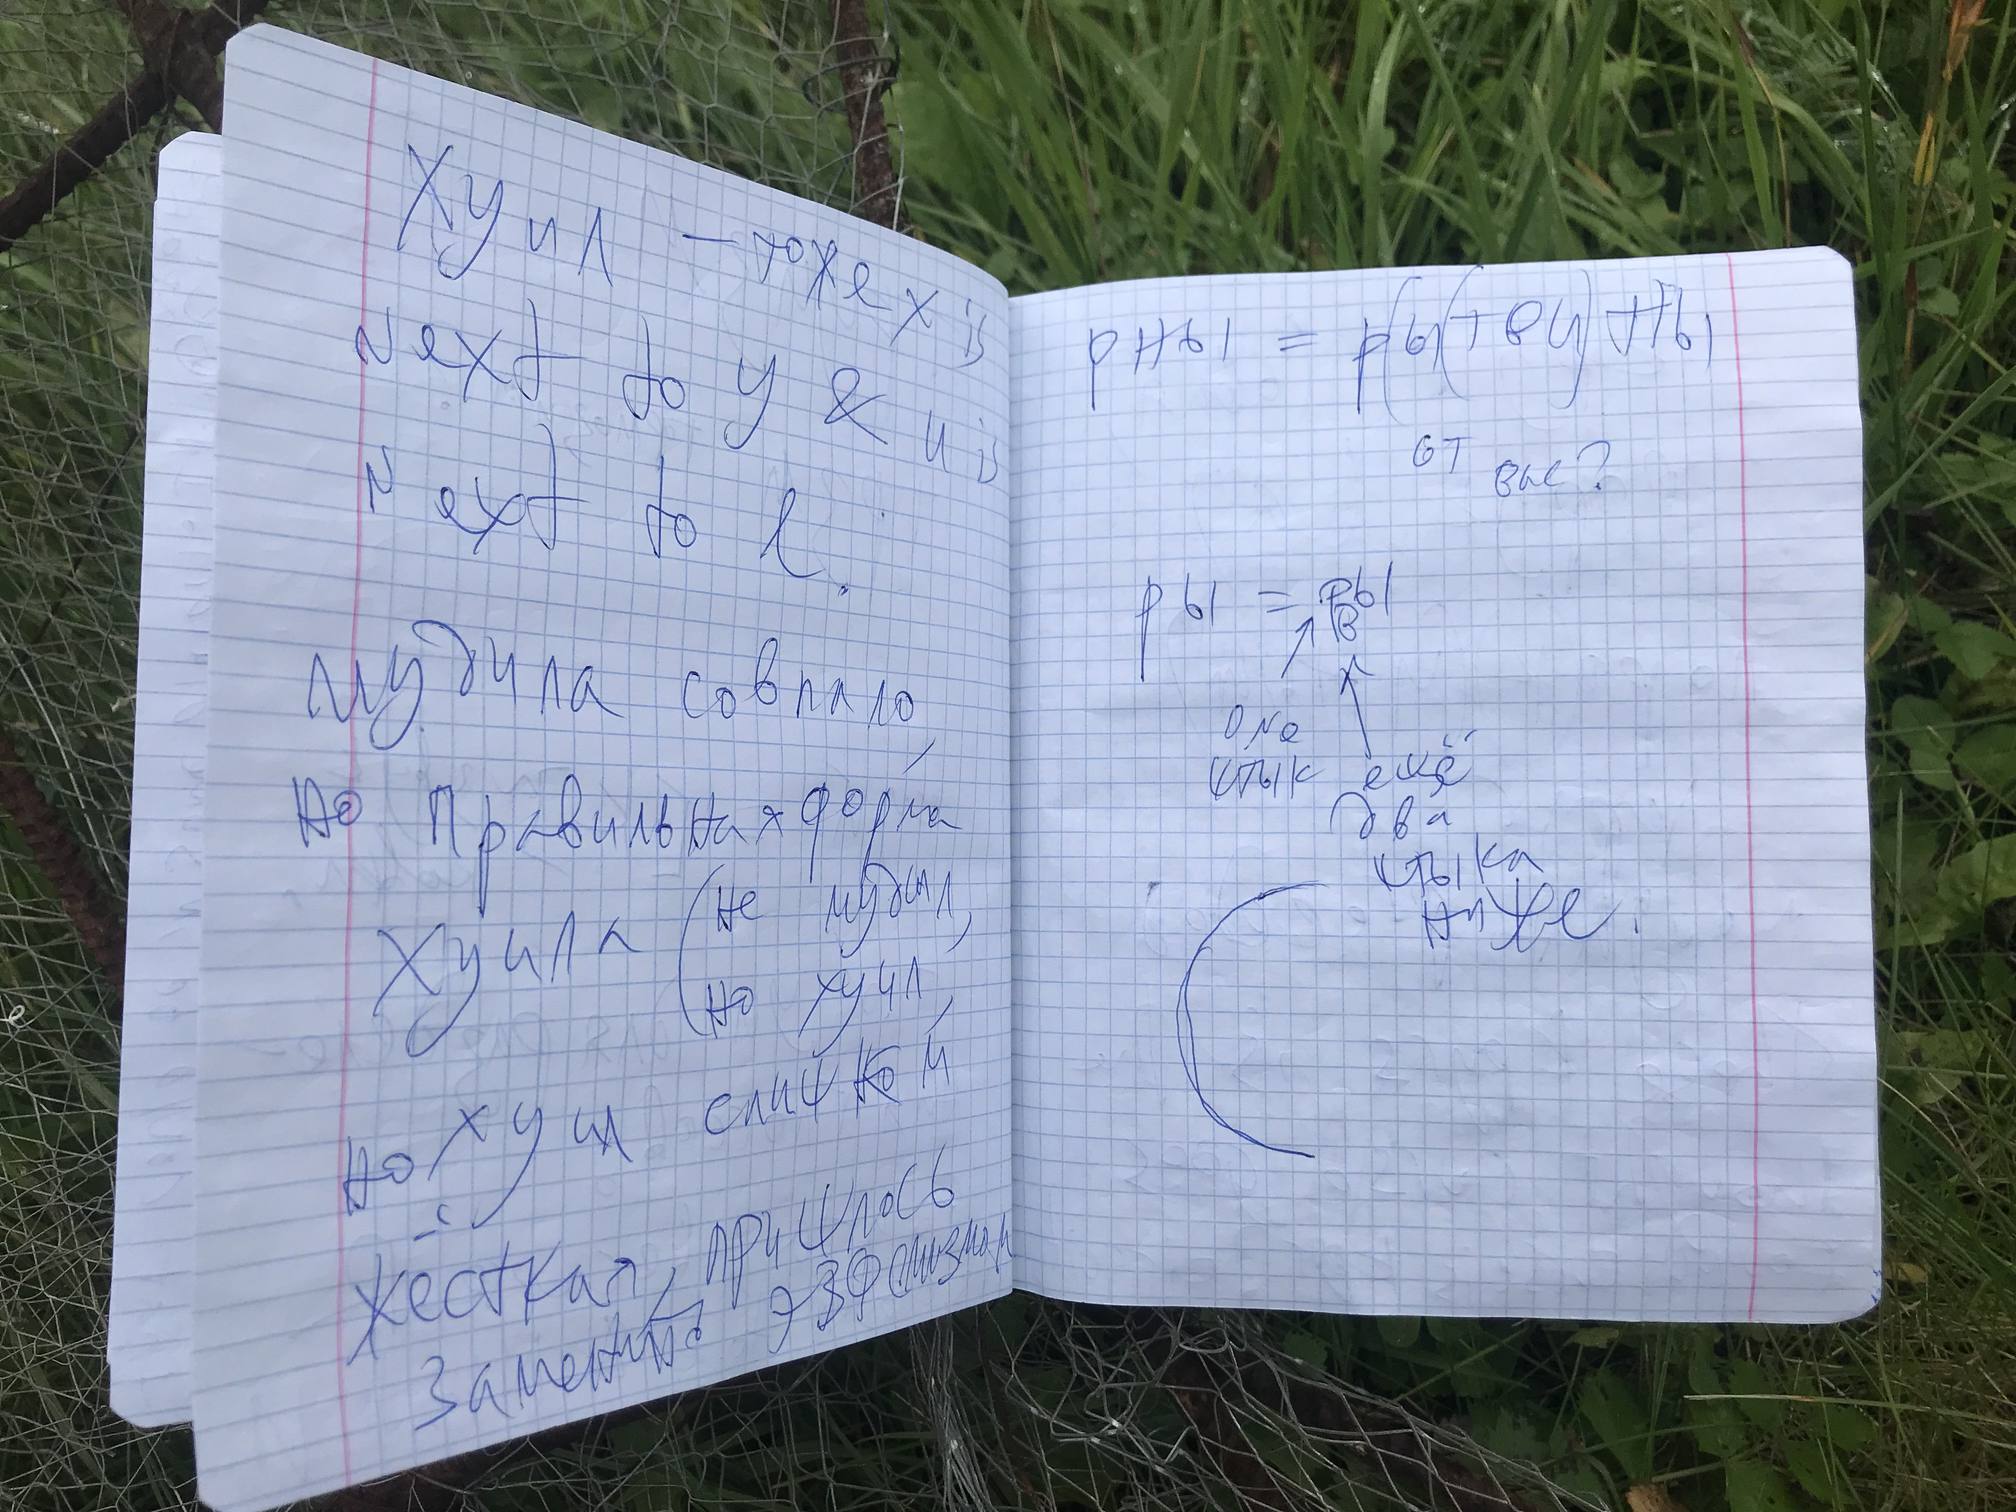 Хуил – тоже х is
Next to у & и is
Next to l.
Мудила совпало,
но правильная форма
Хуила (не мудил,
но хуил,
но хуил слишком
жёсткая, пришлось
заменить эвфемизмом
рны = ры(твы)ны
от вас?
ры = ры
в
one
стык ещё
два
стыка
ниже.